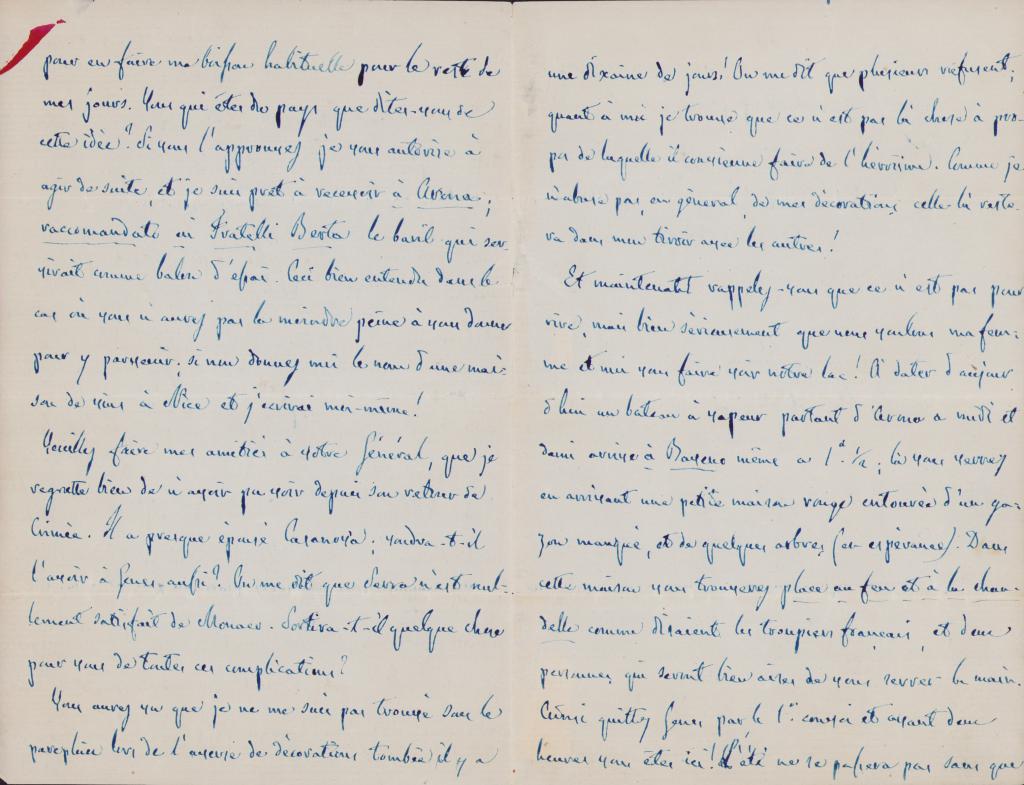 pour en faire ma boisson habituelle pour le reste de
mes jours. Vous qui êtes du pays que dites-vous de
cette idée? Si vous l'approuvez je vous autorise à
agir de suite, et je suis prêt à recevoir à Arona,
raccomandato ai Fratelli Berta le baril qui ser-
virait comme balon d'essai. Ceci bien entendu dans le
cas où vous n'auriez pas la moindre peine à vous donner
pour y parvenir; si non donnez moi le nom d'une mai-
son de vins à Nice et j'écrirai moi-même!
Veuillez faire mes amitiés à votre Général, que je
regrette bien de n'avoir pu voir depuis son retour de
Crimée. Il a presque épousé Casanova; voudra-t-il
l'avoir à Gênes aussi? On me dit que Serra n'est nul-
lement satisfait de Monaco. Sortira-t-il quelque chose
pour vous de toutes ces complications?
Vous aurez vu que je ne me suis pas trouvé sous le
parapluie lors de l'averse de décorations tombée il y a
une dixaine de jours! On me dit que plusieurs refusent;
quant à moi je trouve que ce n'est pas là chose à pro-
pos de laquelle il convienne faire de l'héroïsme. Comme je
n'abuse pas, en général, de mes décorations, celle-là reste-
ra dans mon tiroir avec les autres!
Et maintenant rappelez-vous que ce n'est pas pour
rire, mais bien sérieusement que nous voulons ma fem-
me et moi vous faire voir notre lac! A dater d'aujour
d'hui un bâteau à vapeur partant d'Arona a midi et
demi arrive à Baveno même a 1 h. 1/2; là vous verrez
en arrivant une petite maison rouge entourée d'un ga-
zon manqué, et de quelques arbres (en espérance). Dans
cette maison vous trouverez place au feu et à la chan-
delle comme disaient les troupiers français, et deux
personnes qui seront bien aises de vous serrer la main.
Ainsi quittez Gênes par le 1er convoi et avant deux
heures vous êtes ici! L'été ne se passera pas sans que